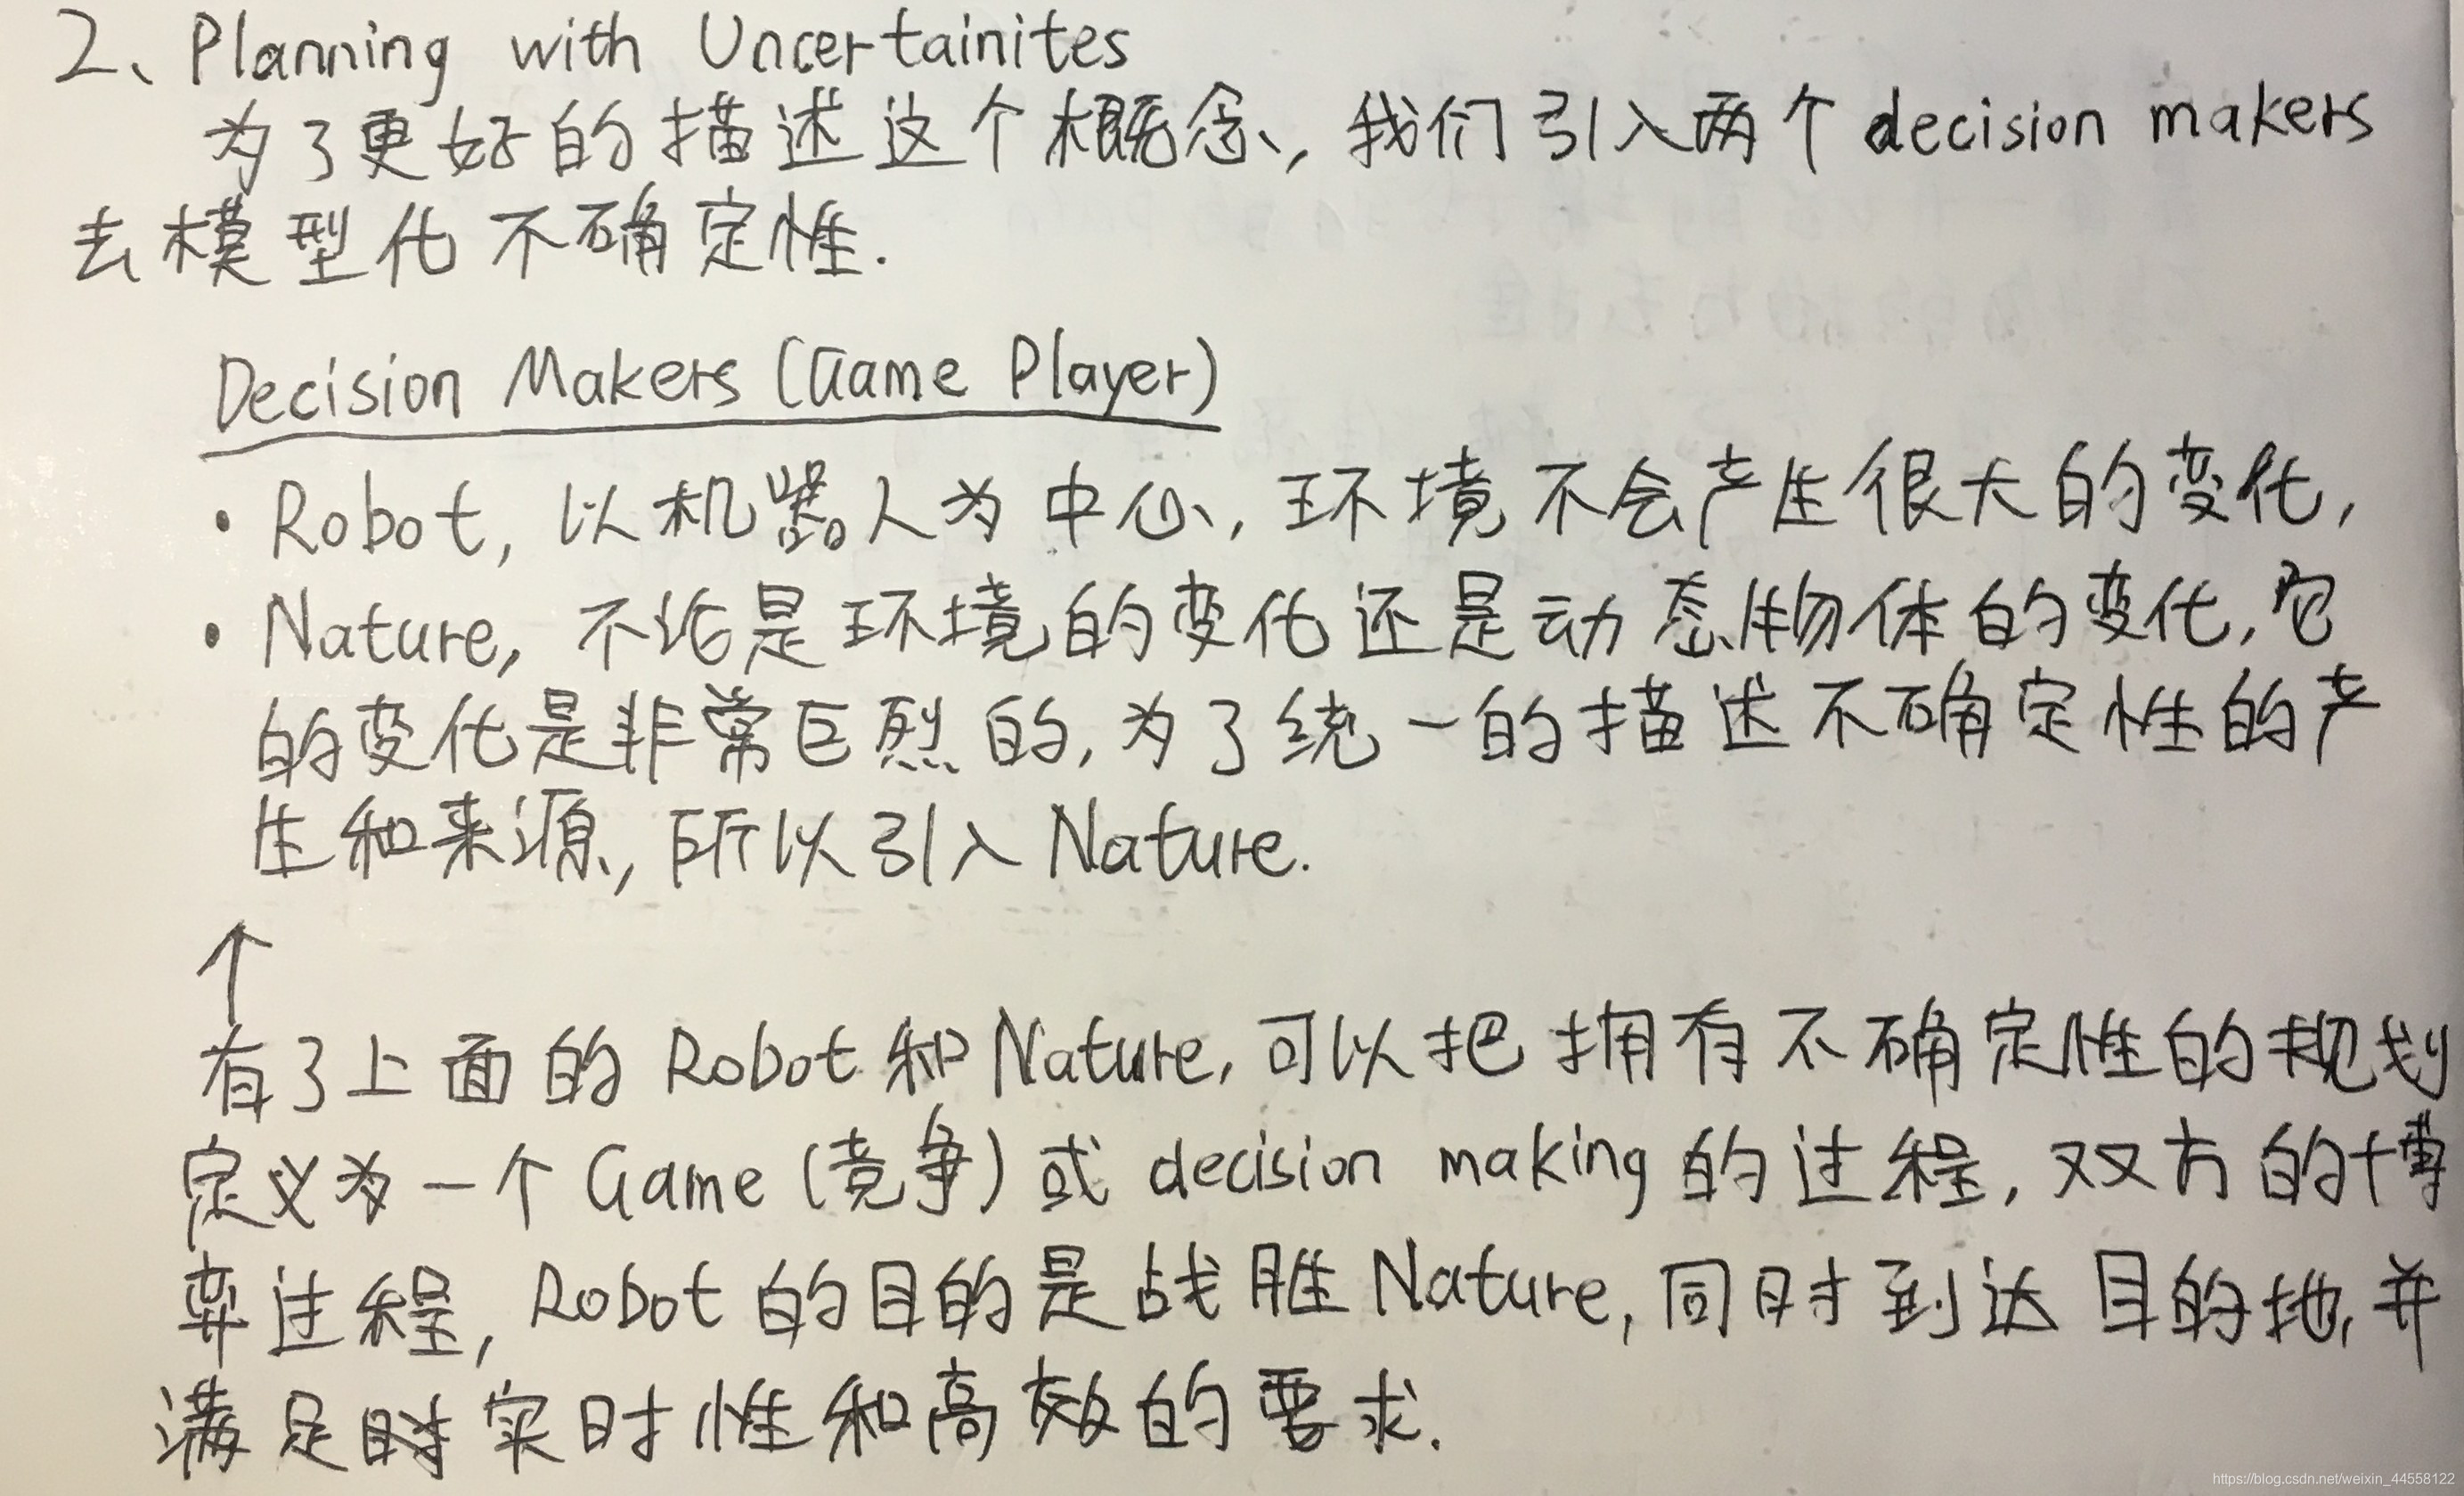 2、Planning with Uncertainites
为了更好的描述这个概念，我们引入两个 decision makers
去模型化不确定性.
Decision Makers (Game Player)
• Robot, 以机器人为中心, 环境不会产生很大的变化,
• Nature, 不论是环境的变化还是动态物体的变化, 它
的变化是非常巨烈的, 为了统一的描述不确定性的产
生和来源, 所以引入 Nature.
↑
有了上面的 Robot 和 Nature, 可以把拥有不确定性的规划
定义为一个 Game (竞争) 或 decision making 的过程, 双方的博
弈过程, Robot 的目的是战胜 Nature, 同时到达目的地, 并
满足实时性和高效的要求.
https://blog.csdn.net/weixin_44558122